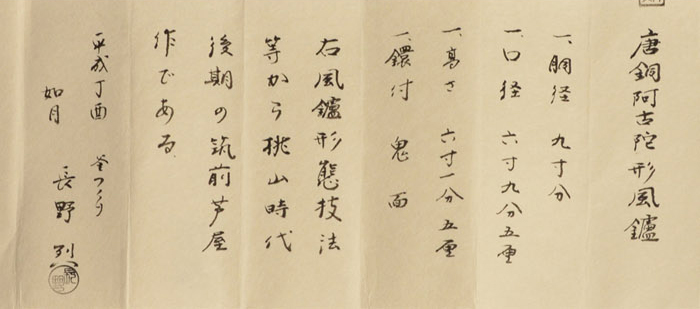 唐銅阿古陀形風鑪
一、胴径 九寸分
一、口径 六寸九分五厘
一、高さ 六寸一分五厘
一、鐶付 鬼面
右風鑪形態技法
等から桃山時代
後期の筑前芦屋
作である
平成丁酉 釜つくり
如月 長野 烈